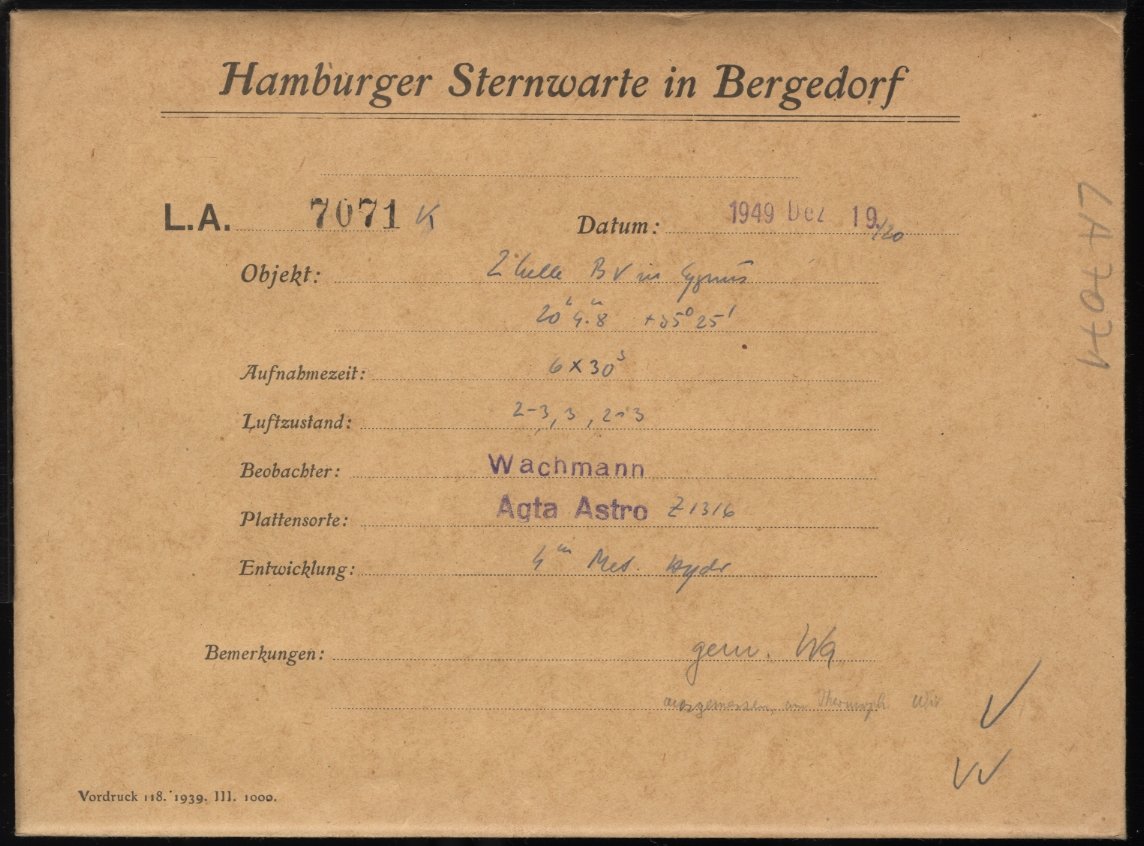 Hamburger Sternwarte in Bergedorf
L.A. 7071 K Datum: 1949 Dez 19./20
Objekt: 2 helle BV in Cygnus
20h 4m.8 +35° 25'
Aufnahmezeit: 6 x 30s
Luftzustand: 2-3, 3, 2-3
Beobachter: Wachmann
Plattensorte: Agfa Astro Z 1316
Entwicklung: 4m Met. Hydr
Bemerkungen: gem. Wa
ausgemessen, im Thermoph.
Vordruck 118. 1939. III. 1000.
LA 7071